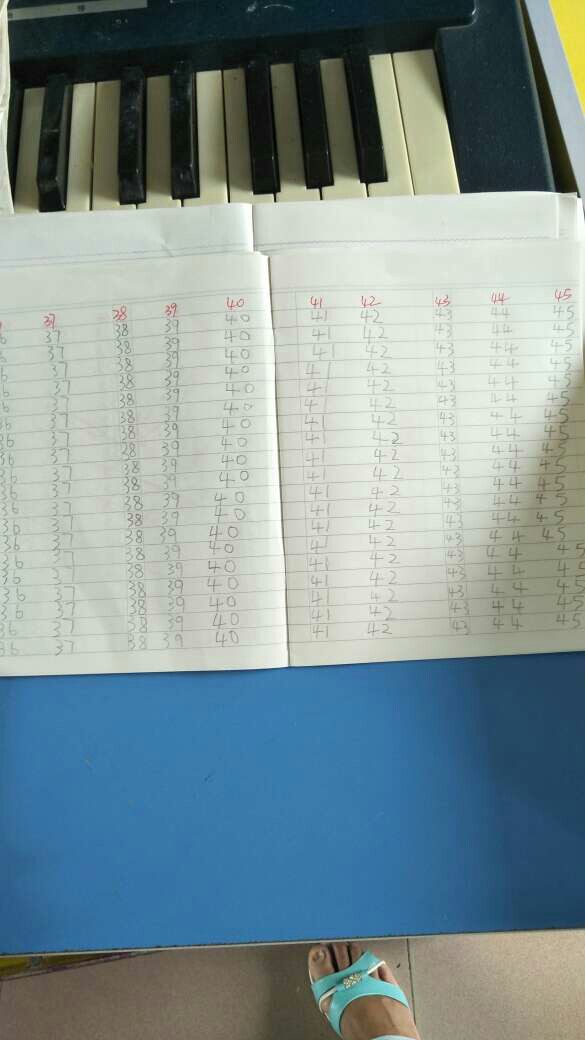 37 38 39 40 41 42 43 44 45
36 37 38 39 40 41 42 43 44 45
36 37 38 39 40 41 42 43 44 45
36 37 38 39 40 41 42 43 44 45
36 37 38 39 40 41 42 43 44 45
36 37 38 39 40 41 42 43 44 45
36 37 38 39 40 41 42 43 44 45
36 37 38 39 40 41 42 43 44 45
36 37 38 39 40 41 42 43 44 45
36 37 38 39 40 41 42 43 44 45
36 37 38 39 40 41 42 43 44 45
36 37 38 39 40 41 42 43 44 45
36 37 38 39 40 41 42 43 44 45
36 37 38 39 40 41 42 43 44 45
36 37 38 39 40 41 42 43 44 45
36 37 38 39 40 41 42 43 44 45
36 37 38 39 40 41 42 43 44 45
36 37 38 39 40 41 42 43 44 45
36 37 38 39 40 41 42 43 44 45
36 37 38 39 40 41 42 43 44 45